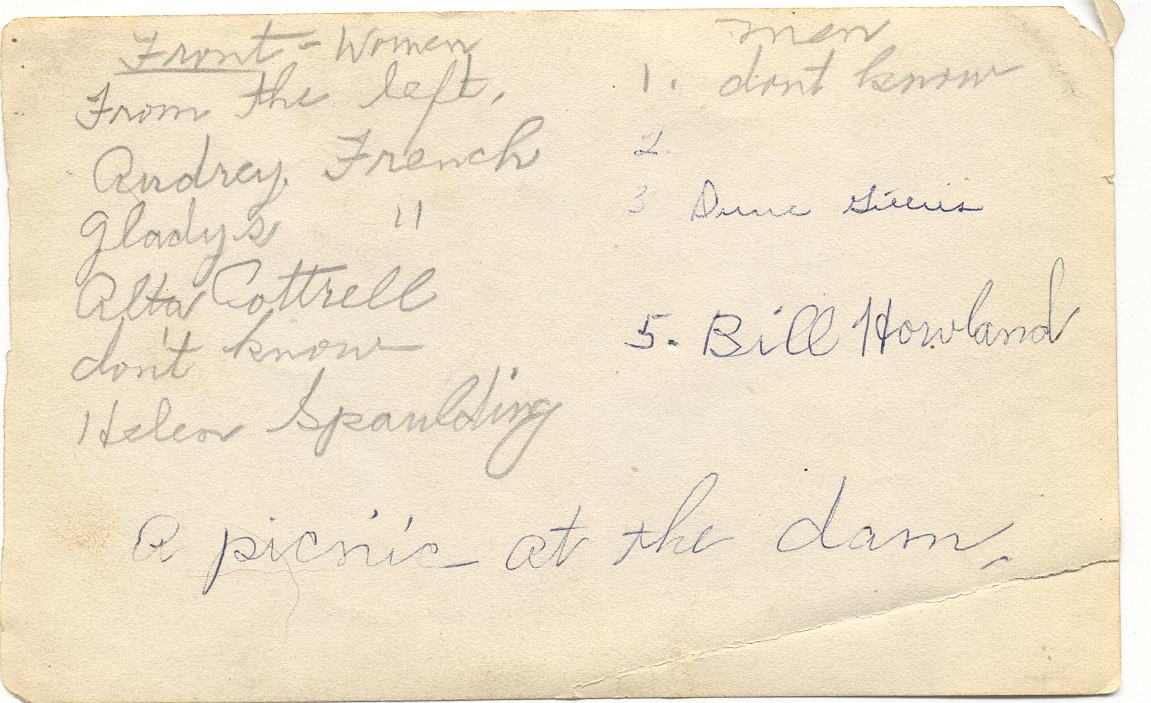 Front - Women
From the left,
Audrey French
Gladys "
Alta Cottrell
don't know
Helen Spaulding
men
1. dont know
2.
3
5. Bill Howland
A picnic at the dam.